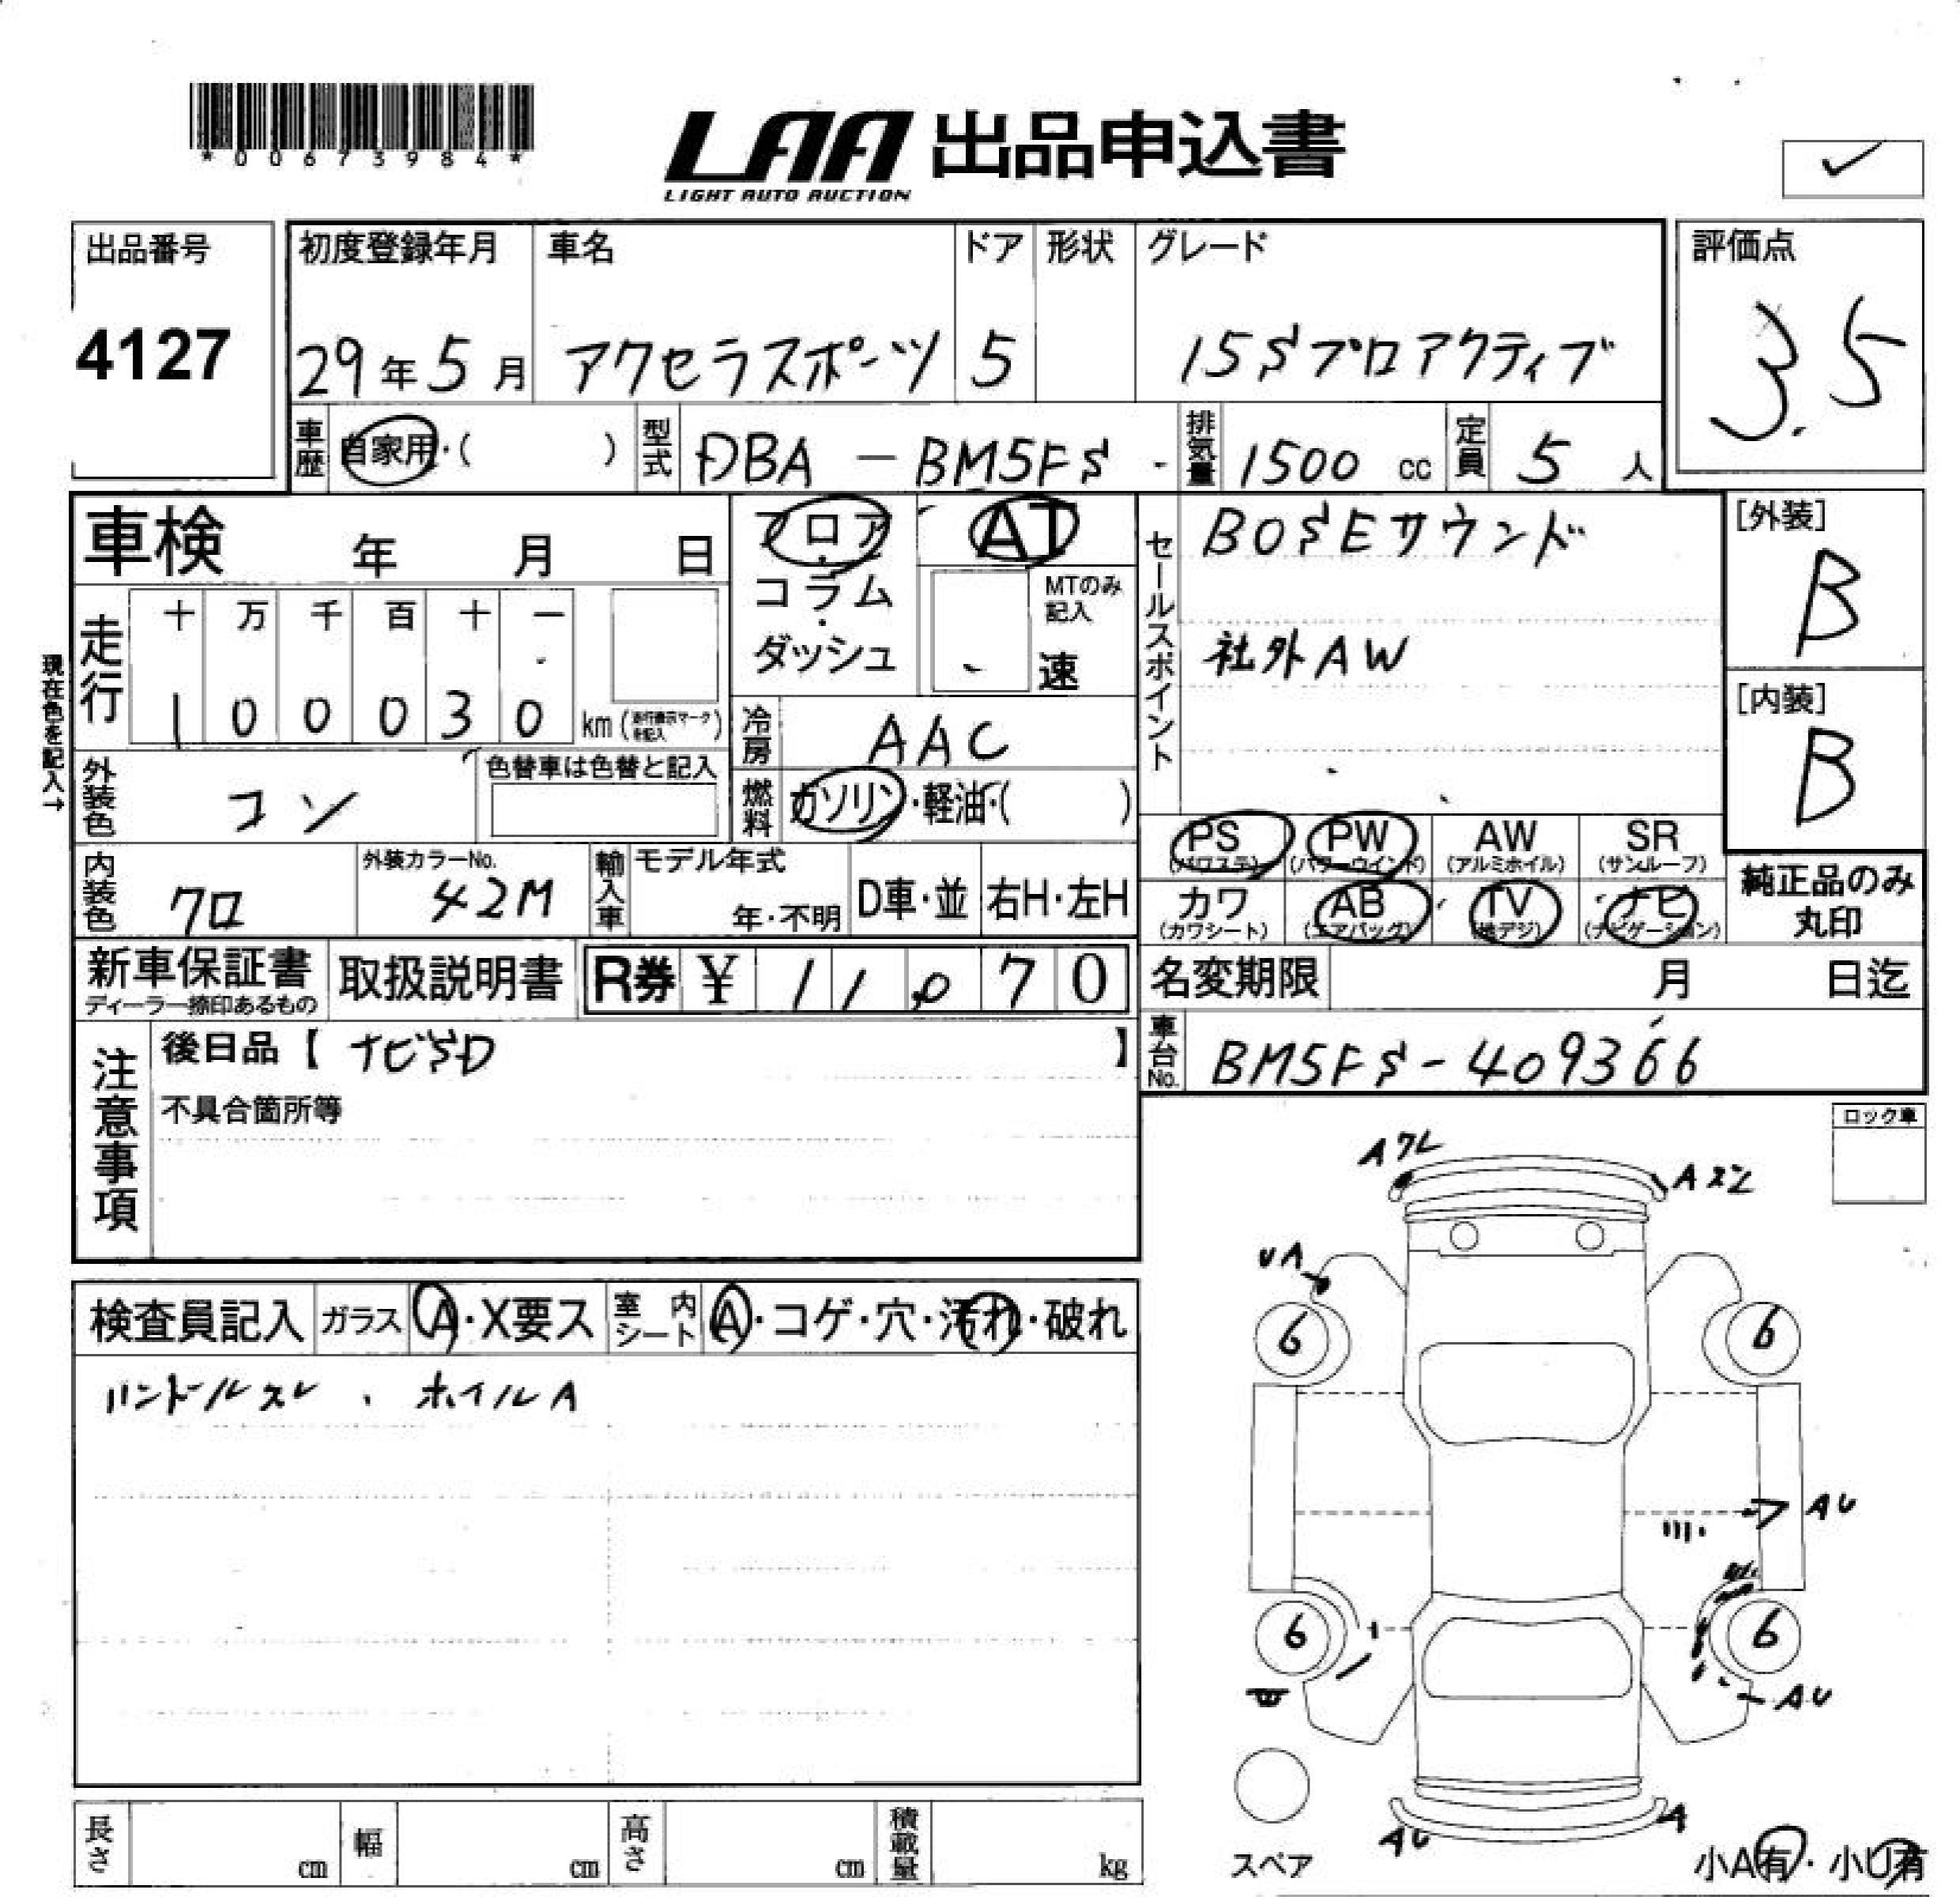 *00673984*
LAA 出品申込書
LIGHT AUTO AUCTION
出品番号
4127
初度登録年月
29年5月
車名
アクセラスポーツ
ドア
5
形状
グレード
15Sプロアクティブ
評価点
3.5
車歴 自家用・( )
型式 DBA-BM5FS
排気量 1500 cc
定員 5 人
車検 年 月 日
フロア・コラム・ダッシュ
AT
MTのみ記入
速
セールスポイント
BOSEサウンド
社外AW
[外装]
B
[内装]
B
現在色を記入→
走行
十 万 千 百 十 一
1 0 0 0 3 0 km (走行表示マークを記入)
冷房 AAC
燃料 ガソリン・軽油・( )
外装色 コン
色替車は色替と記入
内装色 クロ
外装カラーNo.
42M
輸入車 モデル年式
年・不明
D車・並
右H・左H
PS (パワステ)
PW (パワーウインド)
AW (アルミホイル)
SR (サンルーフ)
カワ (カワシート)
AB (エアバッグ)
TV (地デジ)
ナビ (ナビゲーション)
純正品のみ丸印
新車保証書
ディーラー捺印あるもの
取扱説明書
R券 ¥ 11,070
名変期限 月 日迄
車台No. BM5FS-409366
注意事項
後日品【 ナビSD 】
不具合箇所等
ロック車
検査員記入
ガラス A・X要ス
室内シート A・コゲ・穴・汚れ・破れ
ハンドルスレ、ホイルA
Aワレ
Aズレ
UA
6
6
AU
6
6
AU
AU
A
スペア
小A有・小U有
長さ cm
幅 cm
高さ cm
積載量 kg